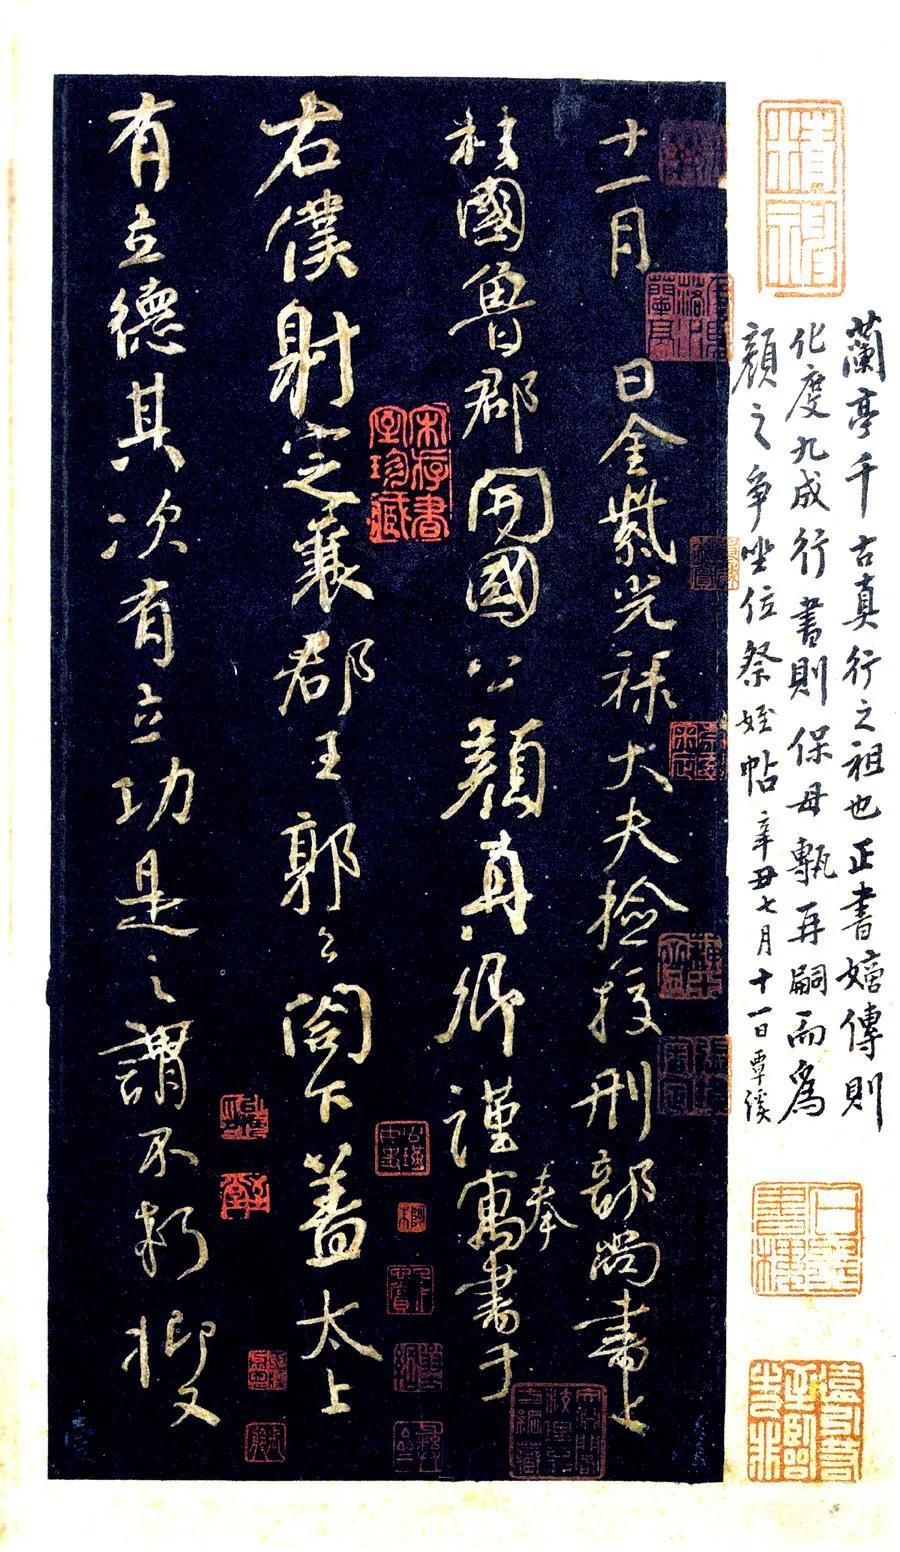 蘭亭千古真行之祖也正書嫡傳則
化度九成行書則保母甎再嗣而爲
顏之爭坐位祭姪帖辛丑七月十一日覃溪
十一月 日金紫光祿大夫撿挍刑部尚書上
柱國魯郡開國公顏真卿謹寓書于
奉
右僕射定襄郡王郭公閤下蓋太上
有立德其次有立功是之謂不朽抑又
宋存書室珍藏